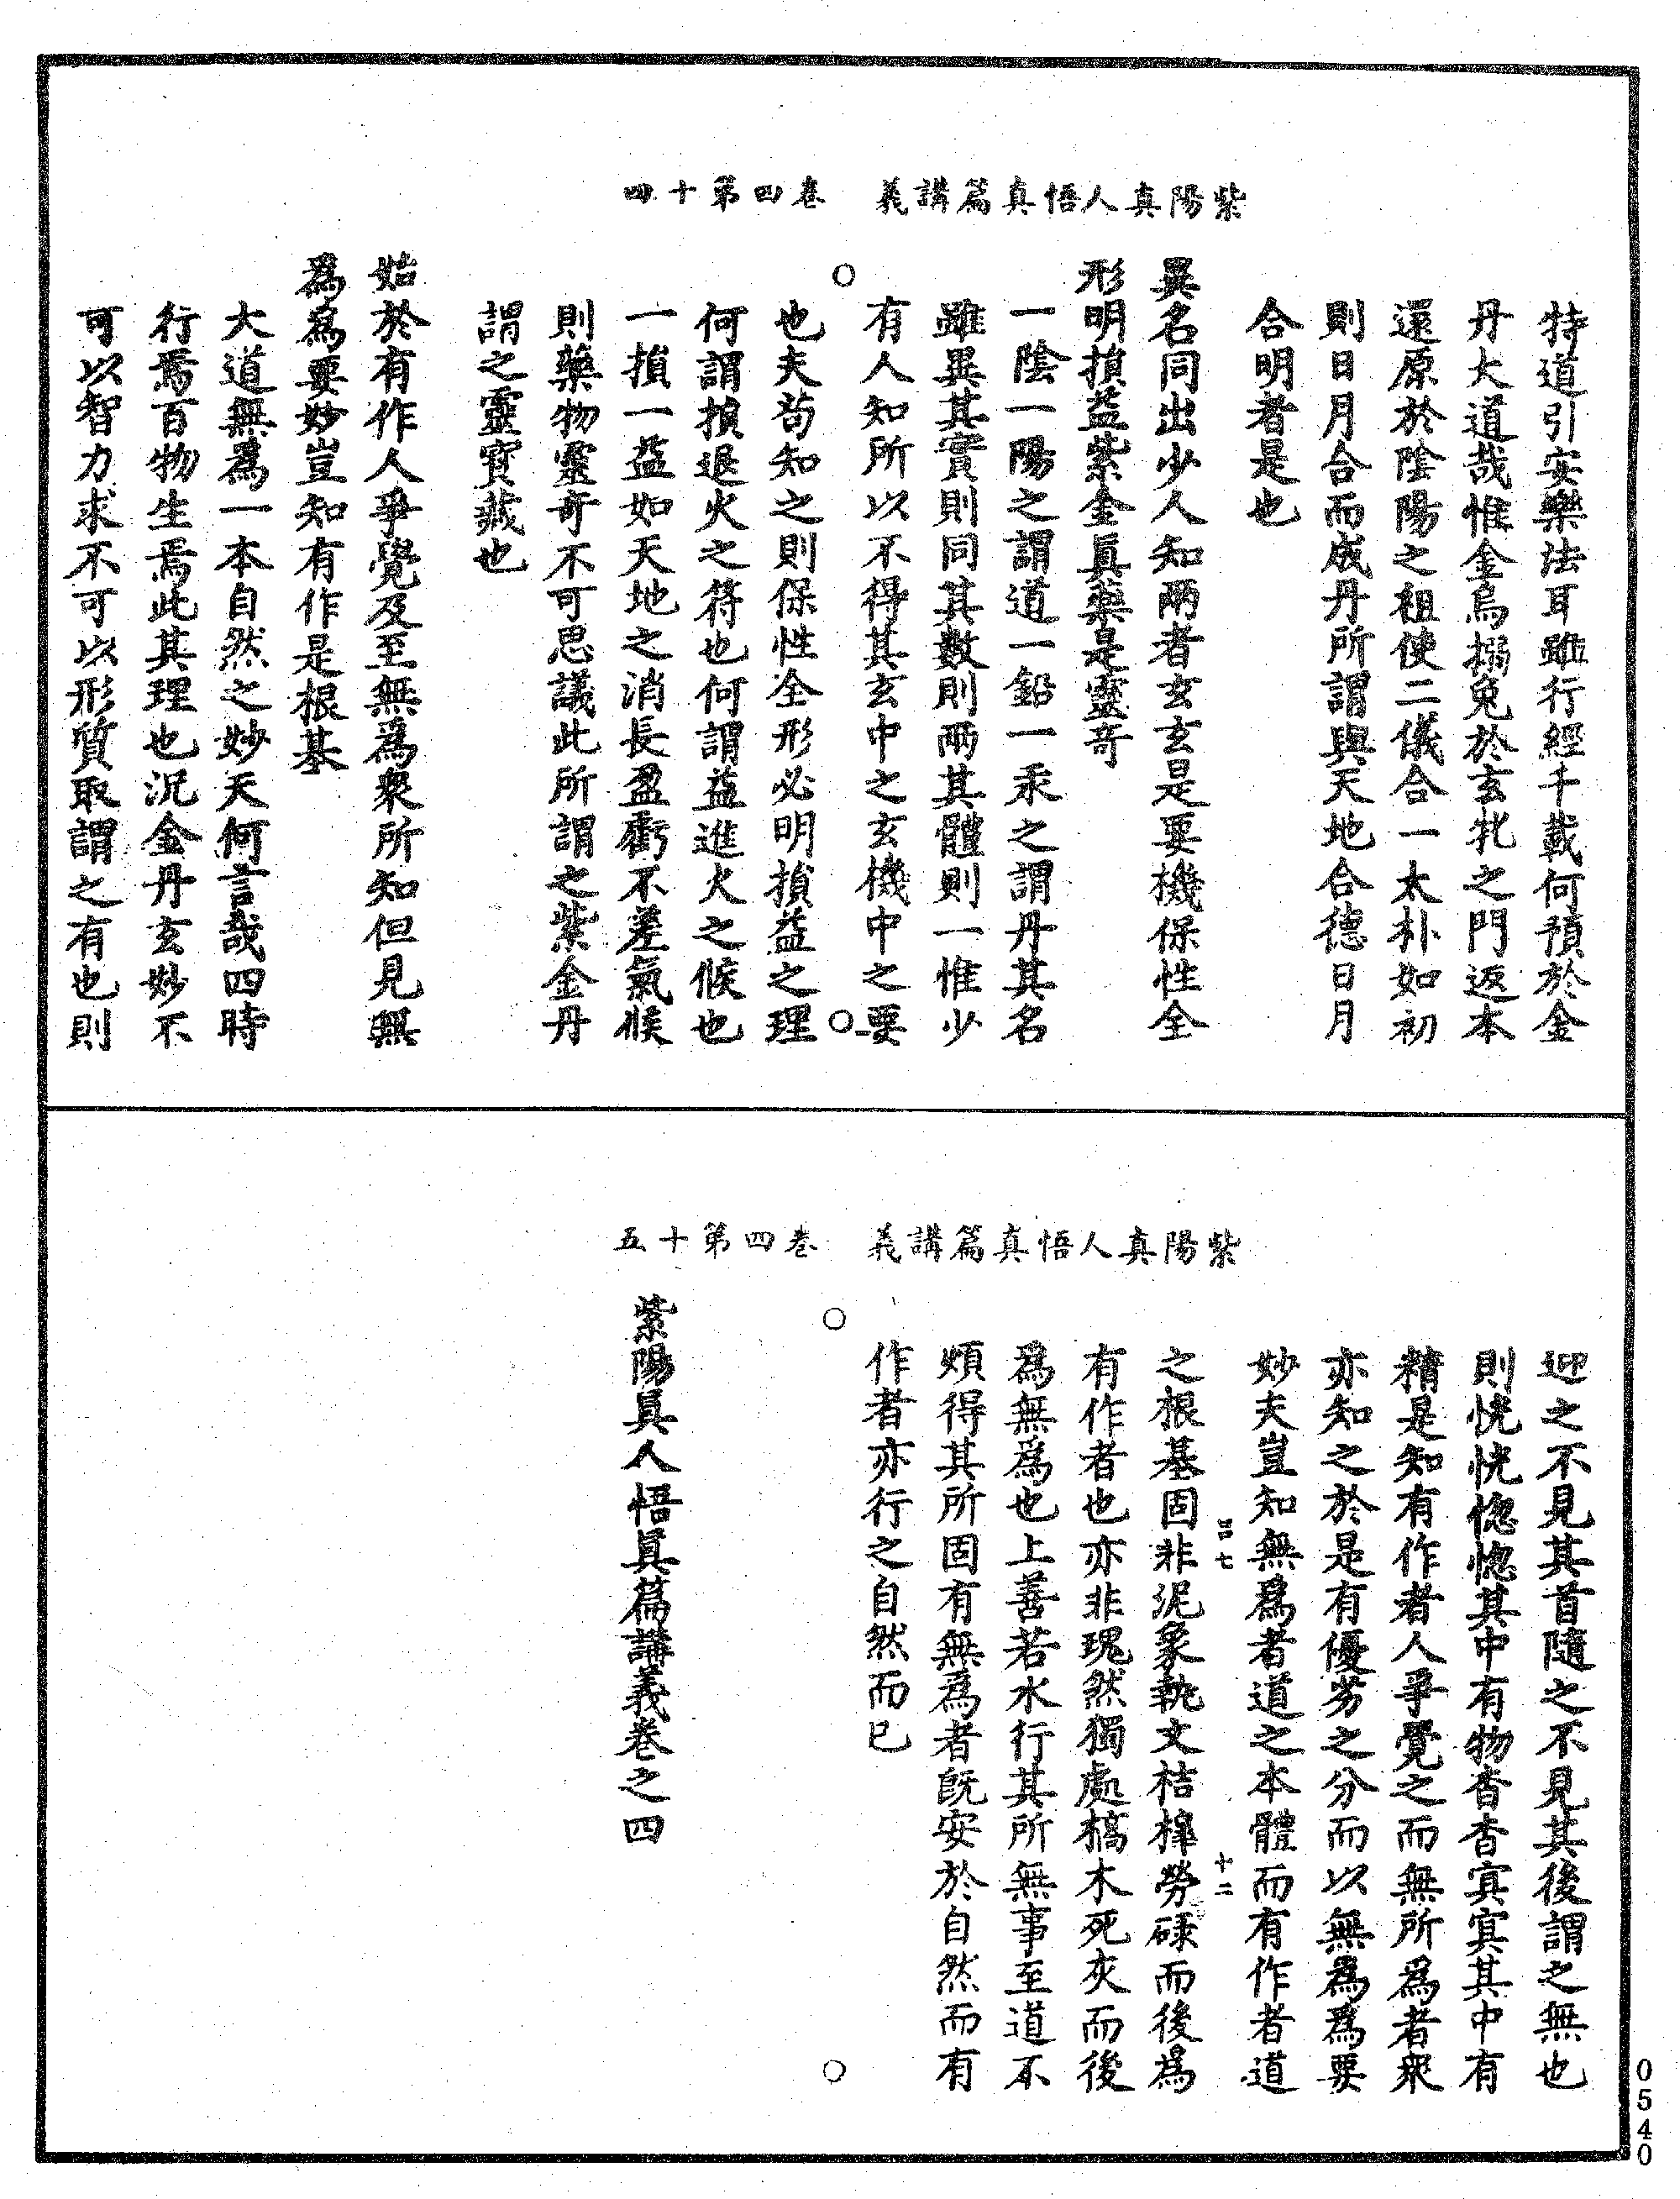 紫陽真人悟真篇講義　卷四第十四
特道引安樂法耳雖行經千載何預於金
丹大道哉惟金烏搦兔於玄牝之門返本
還原於陰陽之祖使二儀合一太朴如初
則日月合而成丹所謂與天地合德日月
合明者是也
異名同出少人知兩者玄玄是要機保性全
形明損益紫金眞藥是靈奇
一陰一陽之謂道一鉛一汞之謂丹其名
雖異其實則同其數則兩其體則一惟少
有人知所以不得其玄中之玄機中之要
也夫苟知之則保性全形必明損益之理
何謂損退火之符也何謂益進火之候也
一損一益如天地之消長盈虧不差氣候
則藥物靈奇不可思議此所謂之紫金丹
謂之靈寳藏也
始於有作人爭覺及至無爲衆所知但見無
爲爲要妙豈知有作是根基
大道無爲一本自然之妙天何言哉四時
行焉百物生焉此其理也況金丹玄妙不
可以智力求不可以形質取謂之有也則
紫陽真人悟真篇講義　卷四第十五
迎之不見其首隨之不見其後謂之無也
則恍恍惚惚其中有物杳杳冥冥其中有
精是知有作者人爭覺之而無所爲者衆
亦知之於是有優劣之分而以無爲爲要
妙夫豈知無爲者道之本體而有作者道
呂七　十二
之根基固非泥象執文桔槔勞碌而後爲
有作者也亦非瑰然獨處槁木死灰而後
爲無爲也上善若水行其所無事至道不
煩得其所固有無爲者既安於自然而有
作者亦行之自然而已
紫陽眞人悟眞篇講義卷之四
0540